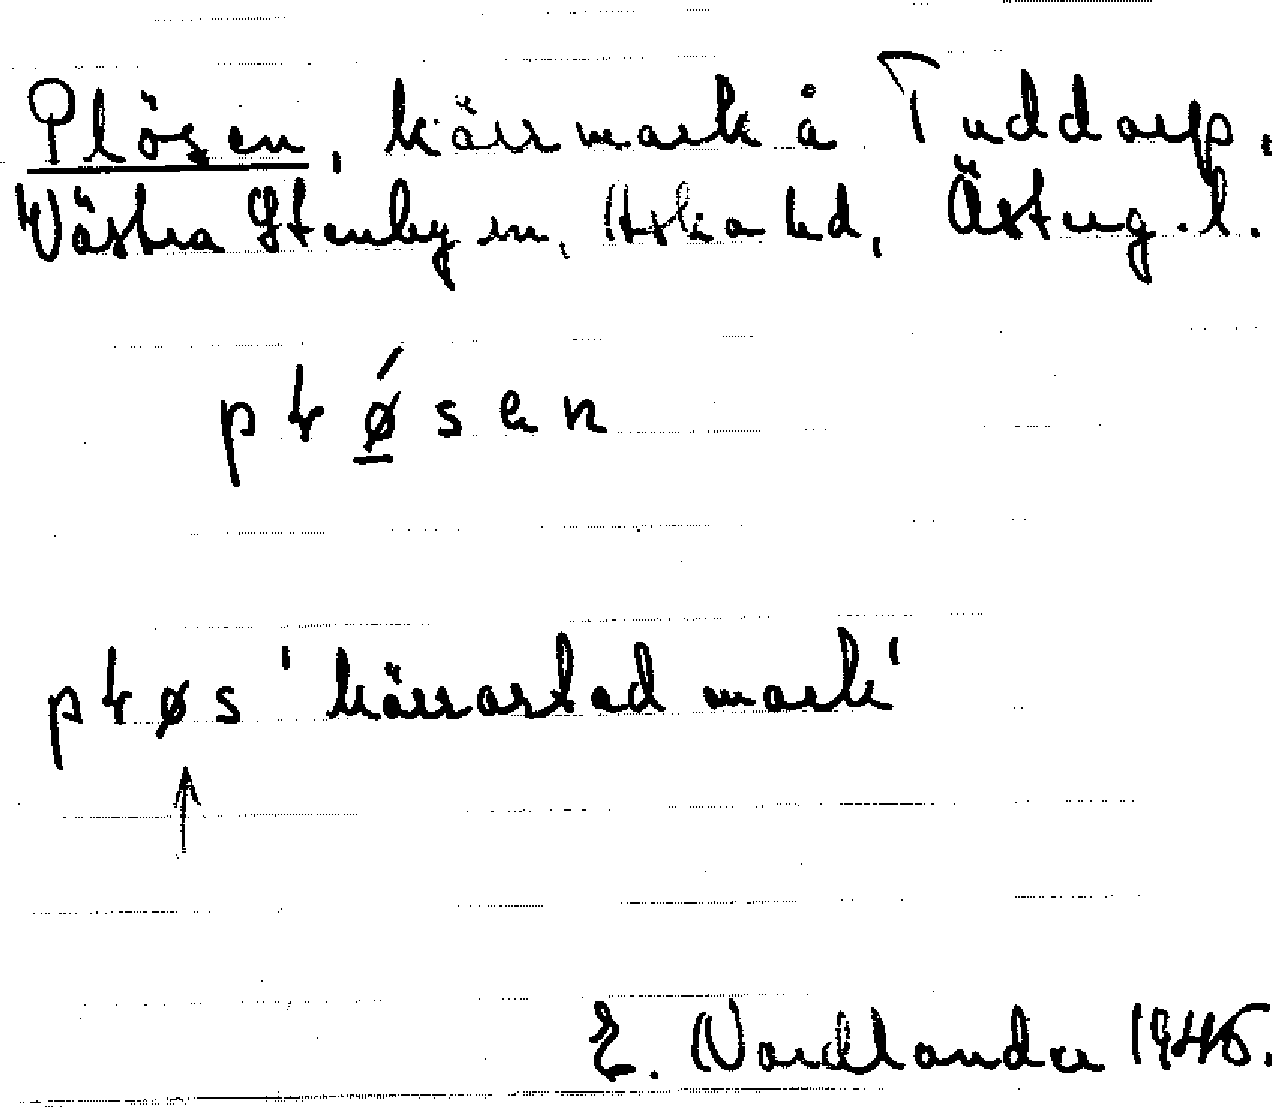 Plösen, kärrmark å Tuddarp,
Västra Stenby sn, Aska hd, Österg.l.
płǿ̲sen
płøs 'kärrartad mark'
↑
E. Nordlander 1946.